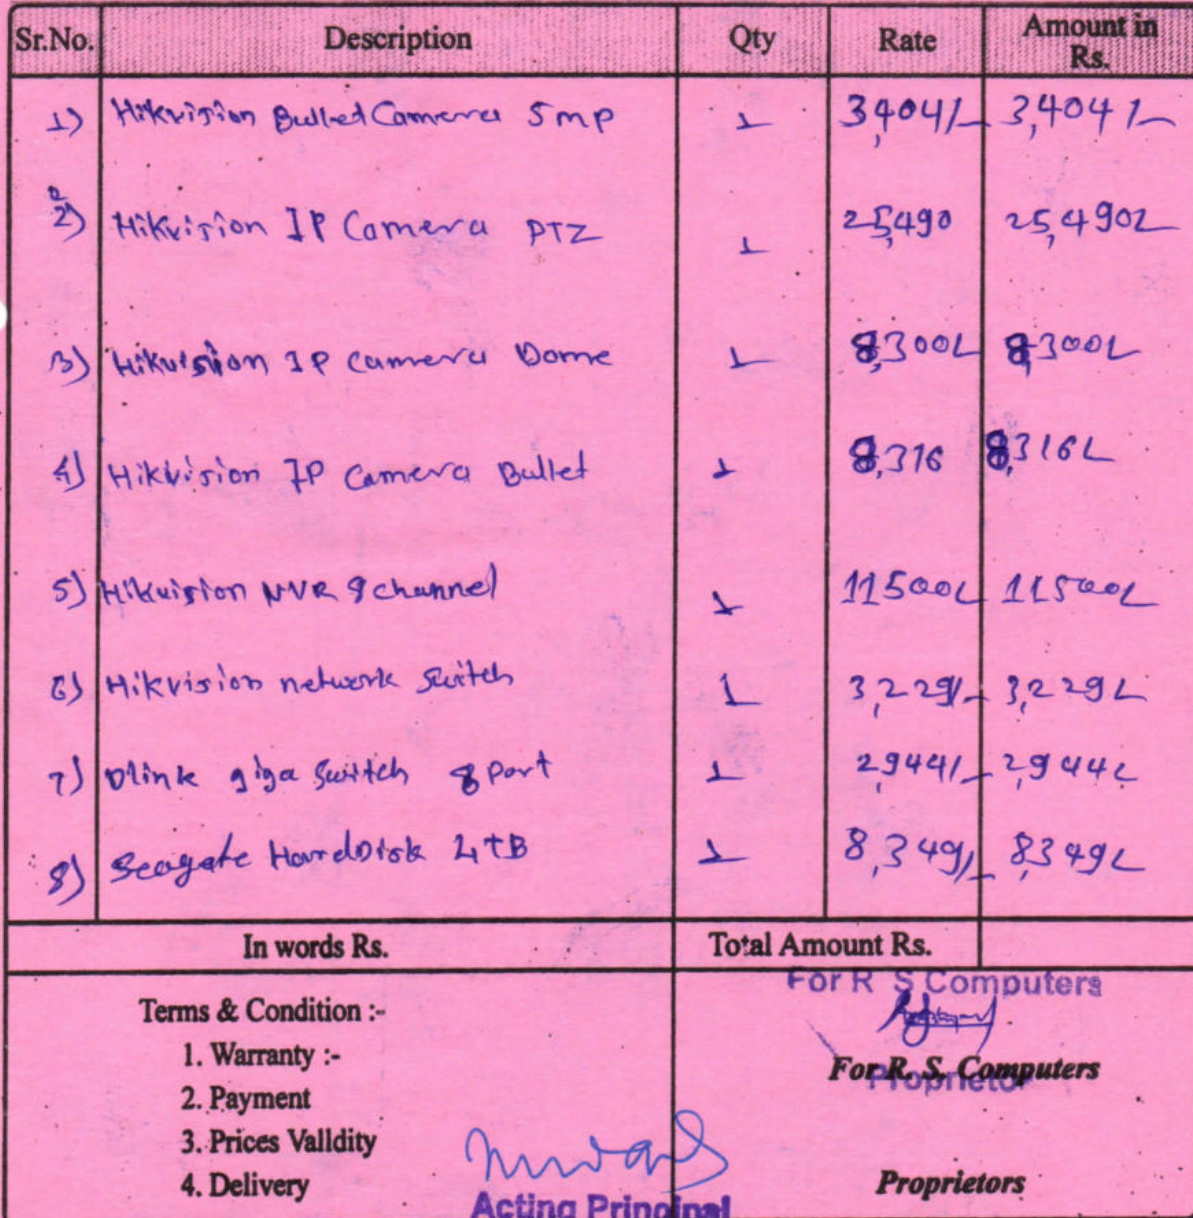 Sr.No. Description Qty Rate Amount in Rs.
1) Hikvision Bullet Camera 5mp 1 3,404/- 3,404/-
2) Hikvision IP Camera PTZ 1 25,490 25,490/-
3) Hikvision IP camera Dome 1 8,300/- 8,300/-
4) Hikvision IP Camera Bullet 1 8,316 8,316/-
5) Hikvision NVR 8 channel 1 11500/- 11500/-
6) Hikvision network switch 1 3,229/- 3,229/-
7) Dlink giga switch 8 Port 1 2,944/- 2,944/-
8) Seagate HardDisk 4TB 1 8,349/- 8,349/-
In words Rs. Total Amount Rs.
For R S Computers
Terms & Condition :-
1. Warranty :-
For R. S. Computers
Proprietor
2. Payment
3. Prices Valldity
4. Delivery
Proprietors
Acting Principal